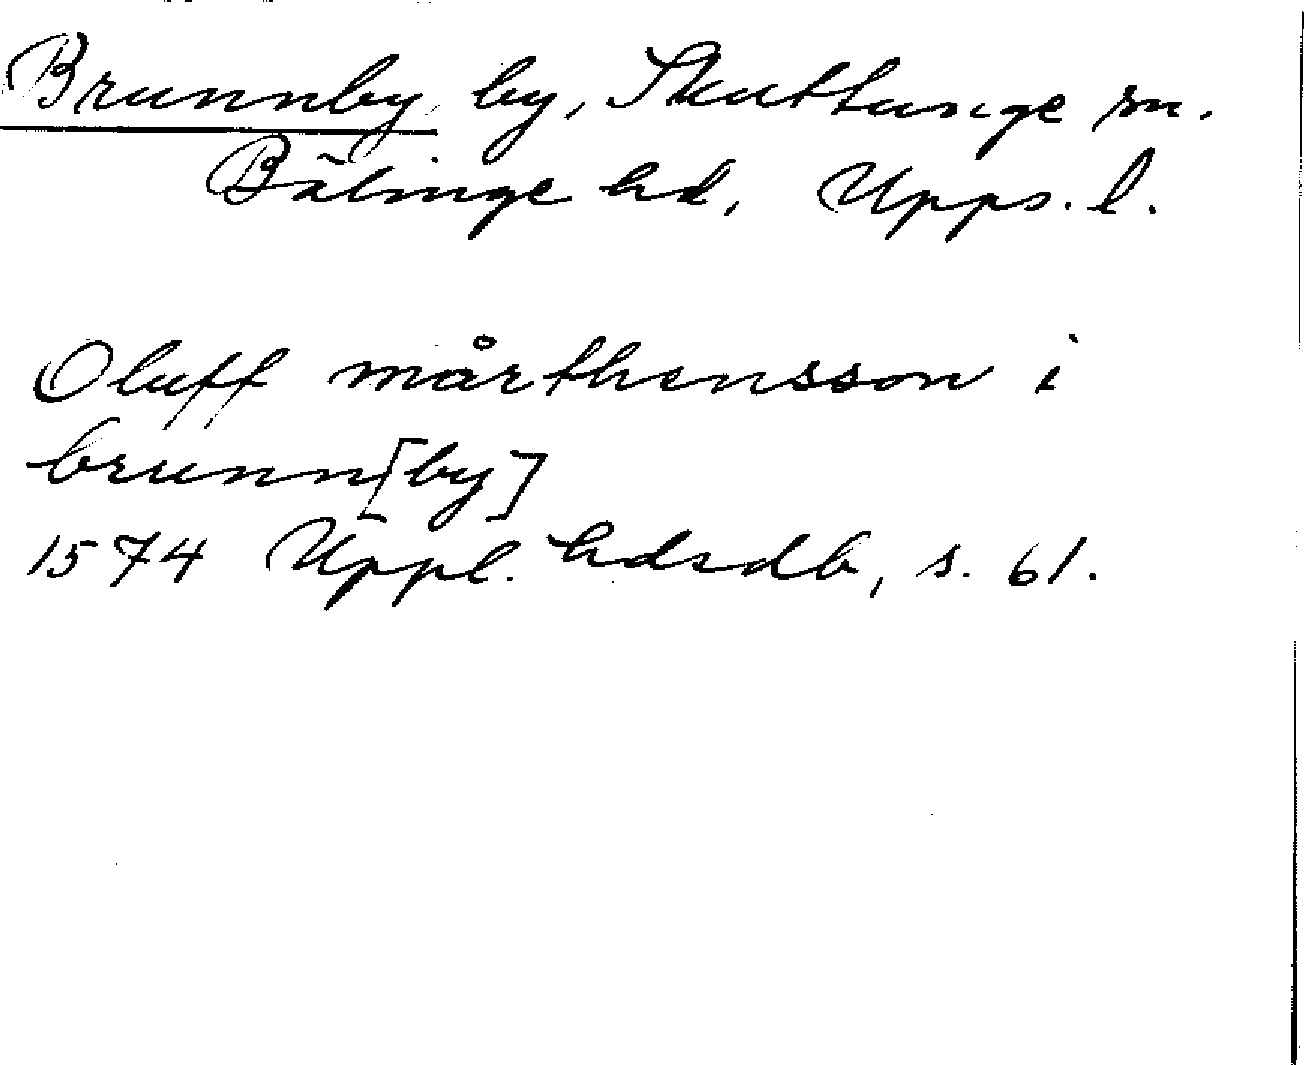 Brunnby, by, Skuttunge sn.
Bälinge hd, Upps. l.
Oluff mårthensson i
brunn[by]
1574 Uppl. hdrdb, s. 61.